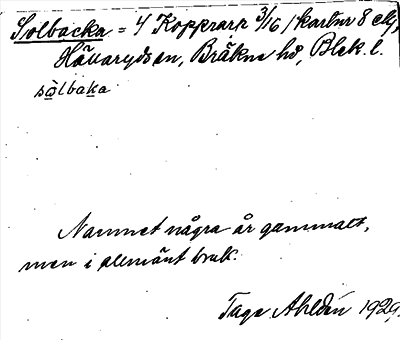 Solbacka = 4 Kopprarp 3/16 / kartnr 8
Hällaryds sn, Bräkne hd, Blek. l.
sòlbaka
Namnet några år gammalt,
men i allmänt bruk.
Tage Ahldén 1929.